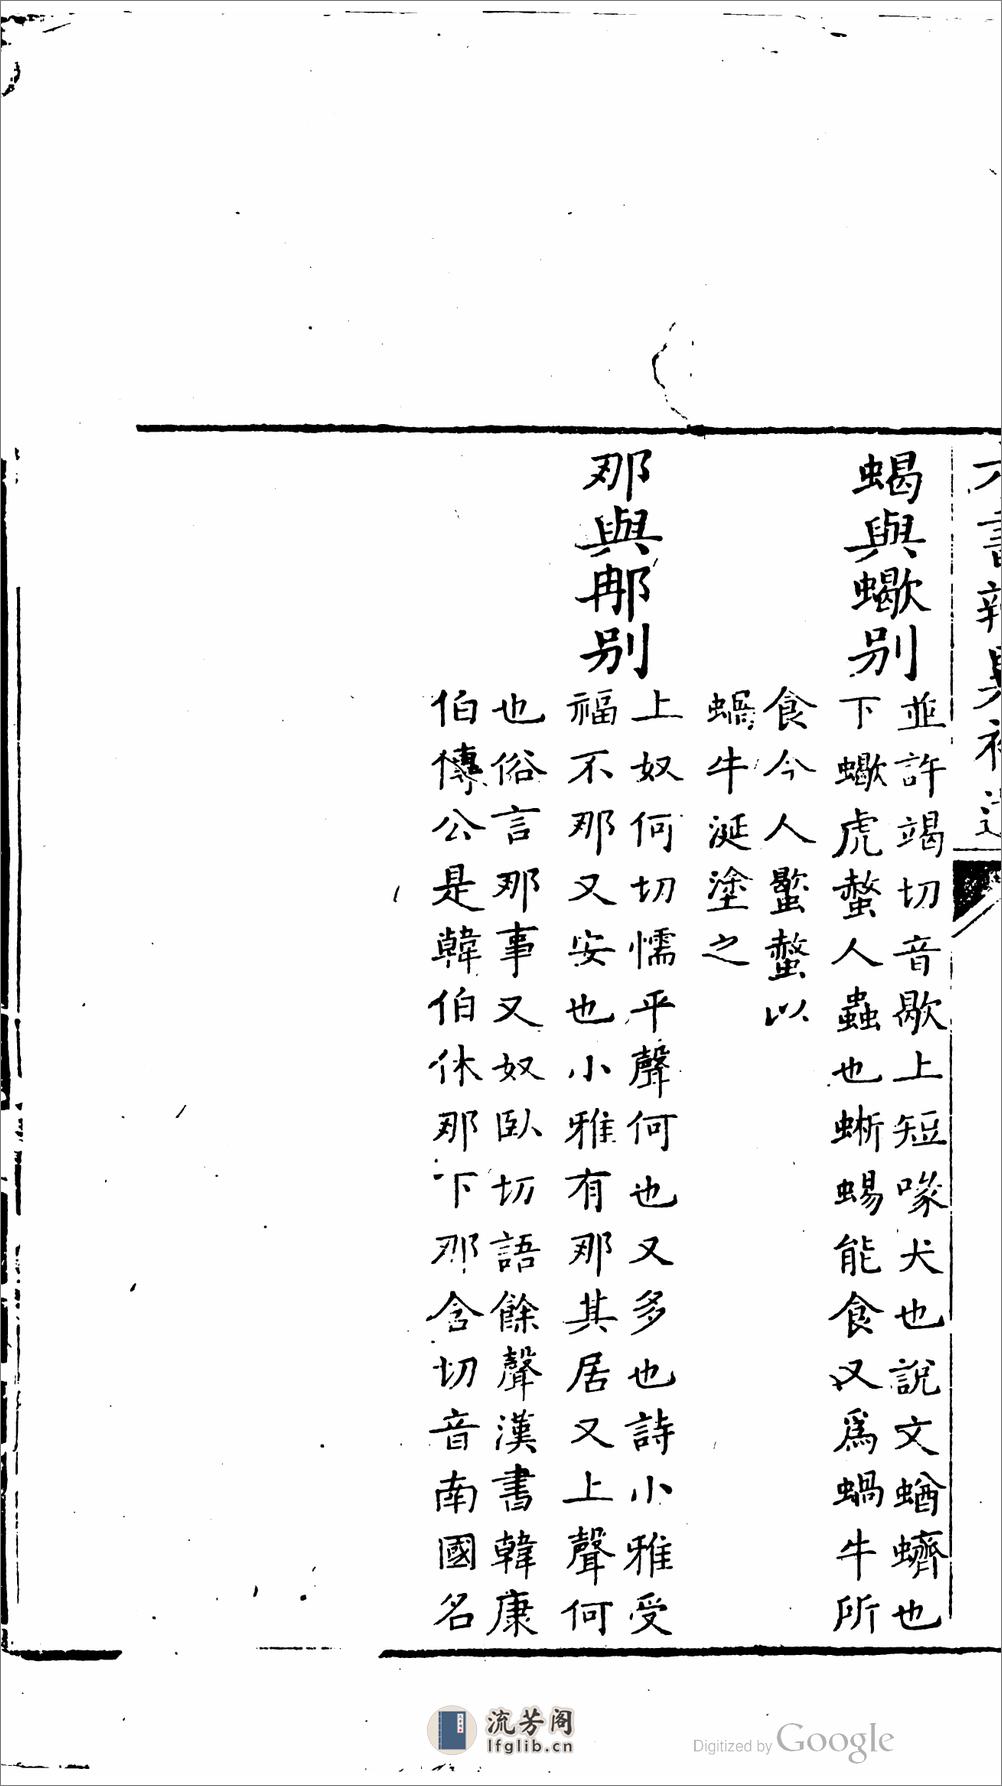 蝎與蠍别
並許竭切音歇上短喙犬也說文蝤蠐也
下蠍虎螫人蟲也蜥蜴能食又爲蝸牛所
食今人蠶螫以
蝸牛涎塗之
那與𨙻别
上奴何切懦平聲何也又多也詩小雅受
福不那又安也小雅有那其居又上聲何
也俗言那事又奴臥切語餘聲漢書韓康
伯傳公是韓伯休那下那含切音南國名
流芳阁
lfglib.cn
Digitized by Google